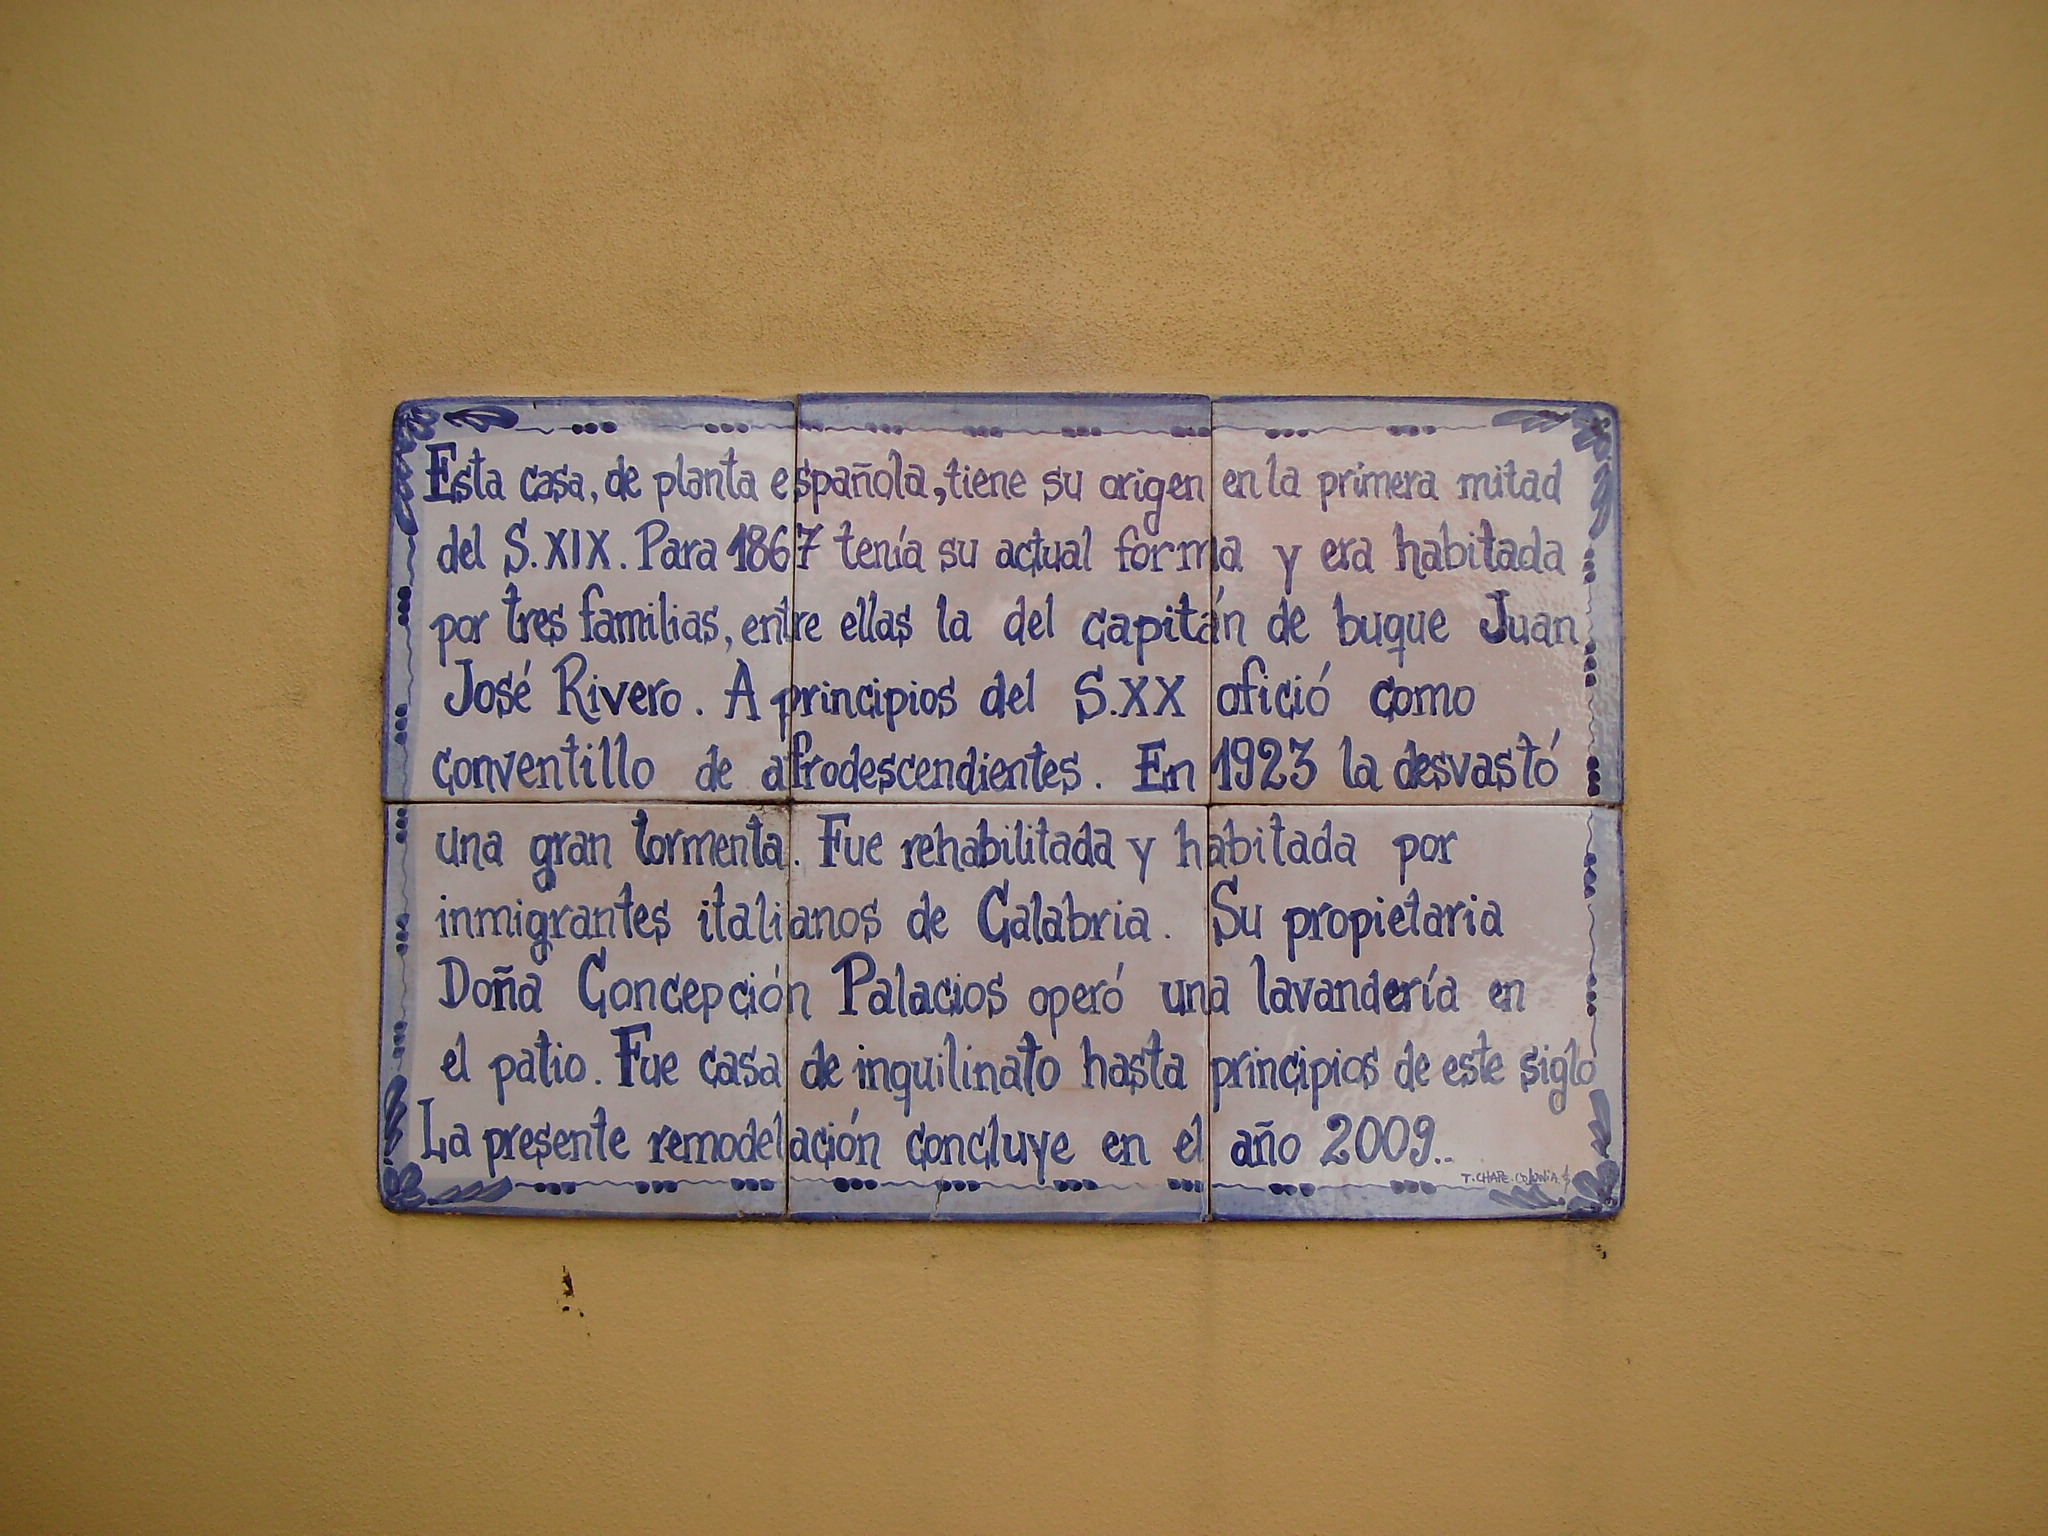 Esta casa, de planta española, tiene su origen en la primera mitad
del S.XIX. Para 1867 tenía su actual forma y era habitada
por tres familias, entre ellas la del capitán de buque Juan
José Rivero. A principios del S.XX ofició como
conventillo de afrodescendientes. En 1923 la desvastó
una gran tormenta. Fue rehabilitada y habitada por
inmigrantes italianos de Calabria. Su propietaria
Doña Concepción Palacios operó una lavandería en
el patio. Fue casa de inquilinato hasta principios de este siglo
La presente remodelación concluye en el año 2009..
T. CHAPE. COLONIA.